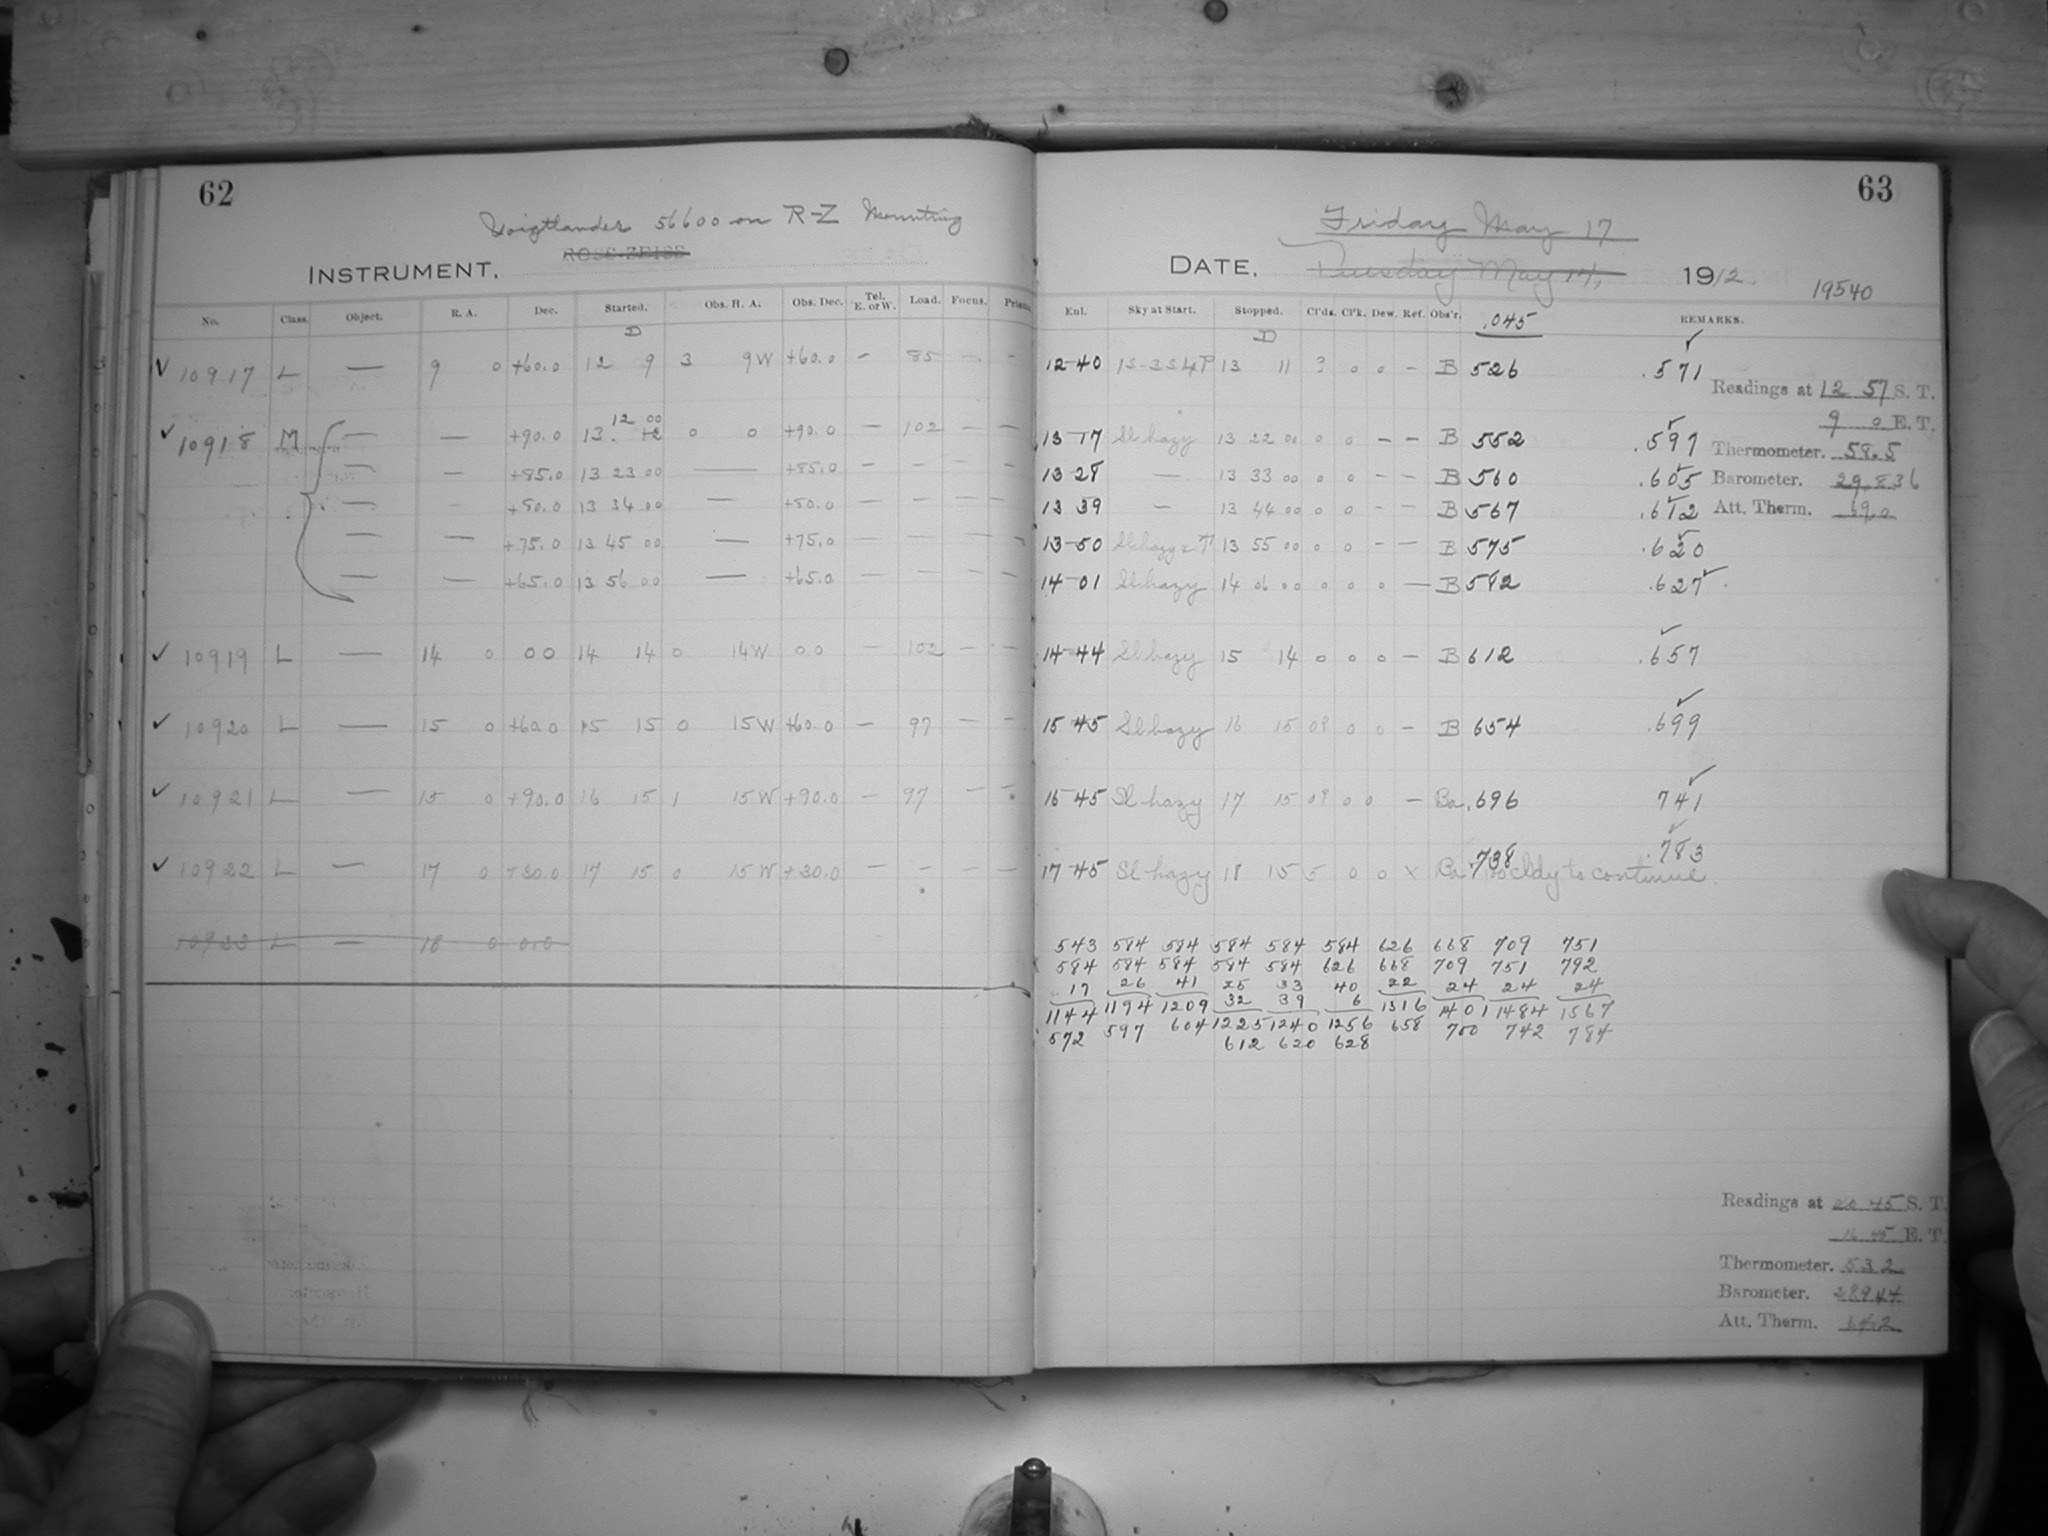 62
Voigtlander 56600 on R-Z Mounting
ROSS-ZEISS
INSTRUMENT.
No. Class. Object. R. A. Dec. Started. Obs. H. A. Obs. Dec. Tel. E. or W. Load. Focus. Prisms
D
✓ 10917 L — 9 0 +60.0 12 9 3 9W +60.0 – 85 — –
12 00
✓ 10918 M — — +90.0 13. 12 0 0 +90.0 — 102 — —
— — +85.0 13 23 00 — +85.0 — — — —
— — +80.0 13 34 00 — +80.0 — — — —
— — +75.0 13 45 00 — +75.0 — — — —
— — +65.0 13 56 00 — +65.0 — — — —
✓ 10919 L — 14 0 00 14 14 0 14W 00 — 102 — —
✓ 10920 L — 15 0 +60.0 15 15 0 15W +60.0 — 97 — —
✓ 10921 L — 15 0 +90.0 16 15 1 15W +90.0 — 97 — —
✓ 10922 L — 17 0 +30.0 17 15 0 15W +30.0 — — — —
10923 L — 18 0 0.0
63
Friday May 17
DATE, Tuesday May 14, 1912.
19540
Enl. Sky at Start. Stopped. Cl'ds. Cl'k. Dew. Ref. Obs'r. .045 REMARKS.
D
12-40 1S-3S4P 13 11 ? 0 0 – B 526 .571 ✓
Readings at 12 57 S. T.
9 0 E. T.
13-17 Sl hazy 13 22 00 0 0 – – B 552 .597 ✓
Thermometer. 58.5
13 28 — 13 33 00 0 0 – – B 560 .605 ✓
Barometer. 29.836
13 39 — 13 44 00 0 0 – – B 567 .612 ✓
Att. Therm. 69.0
13-50 Sl hazy 13 55 00 0 0 – – B 575 .620 ✓
14-01 Sl hazy 14 06 00 0 0 0 — B 582 .627 ✓
14-44 Sl hazy 15 14 0 0 0 – B 612 .657 ✓
15 45 Sl hazy 16 15 0? 0 0 – B 654 .699 ✓
16 45 Sl hazy 17 15 0? 0 0 – Ba .696 741 ✓
17 45 Sl hazy 18 15 5 0 0 x Ba .738 .783 ✓
Too cldy to continue.
543 584 584 584 584 584 626 668 709 751
584 584 584 584 584 626 668 709 751 792
17 26 41 25 33 40 22 24 24 24
32 39 6
1144 1194 1209 1225 1240 1256 1316 1401 1484 1567
572 597 604 612 620 628 658 700 742 784
Readings at 20 45 S. T.
16 45 E. T.
Thermometer. 53.2
Barometer.
Att. Therm.